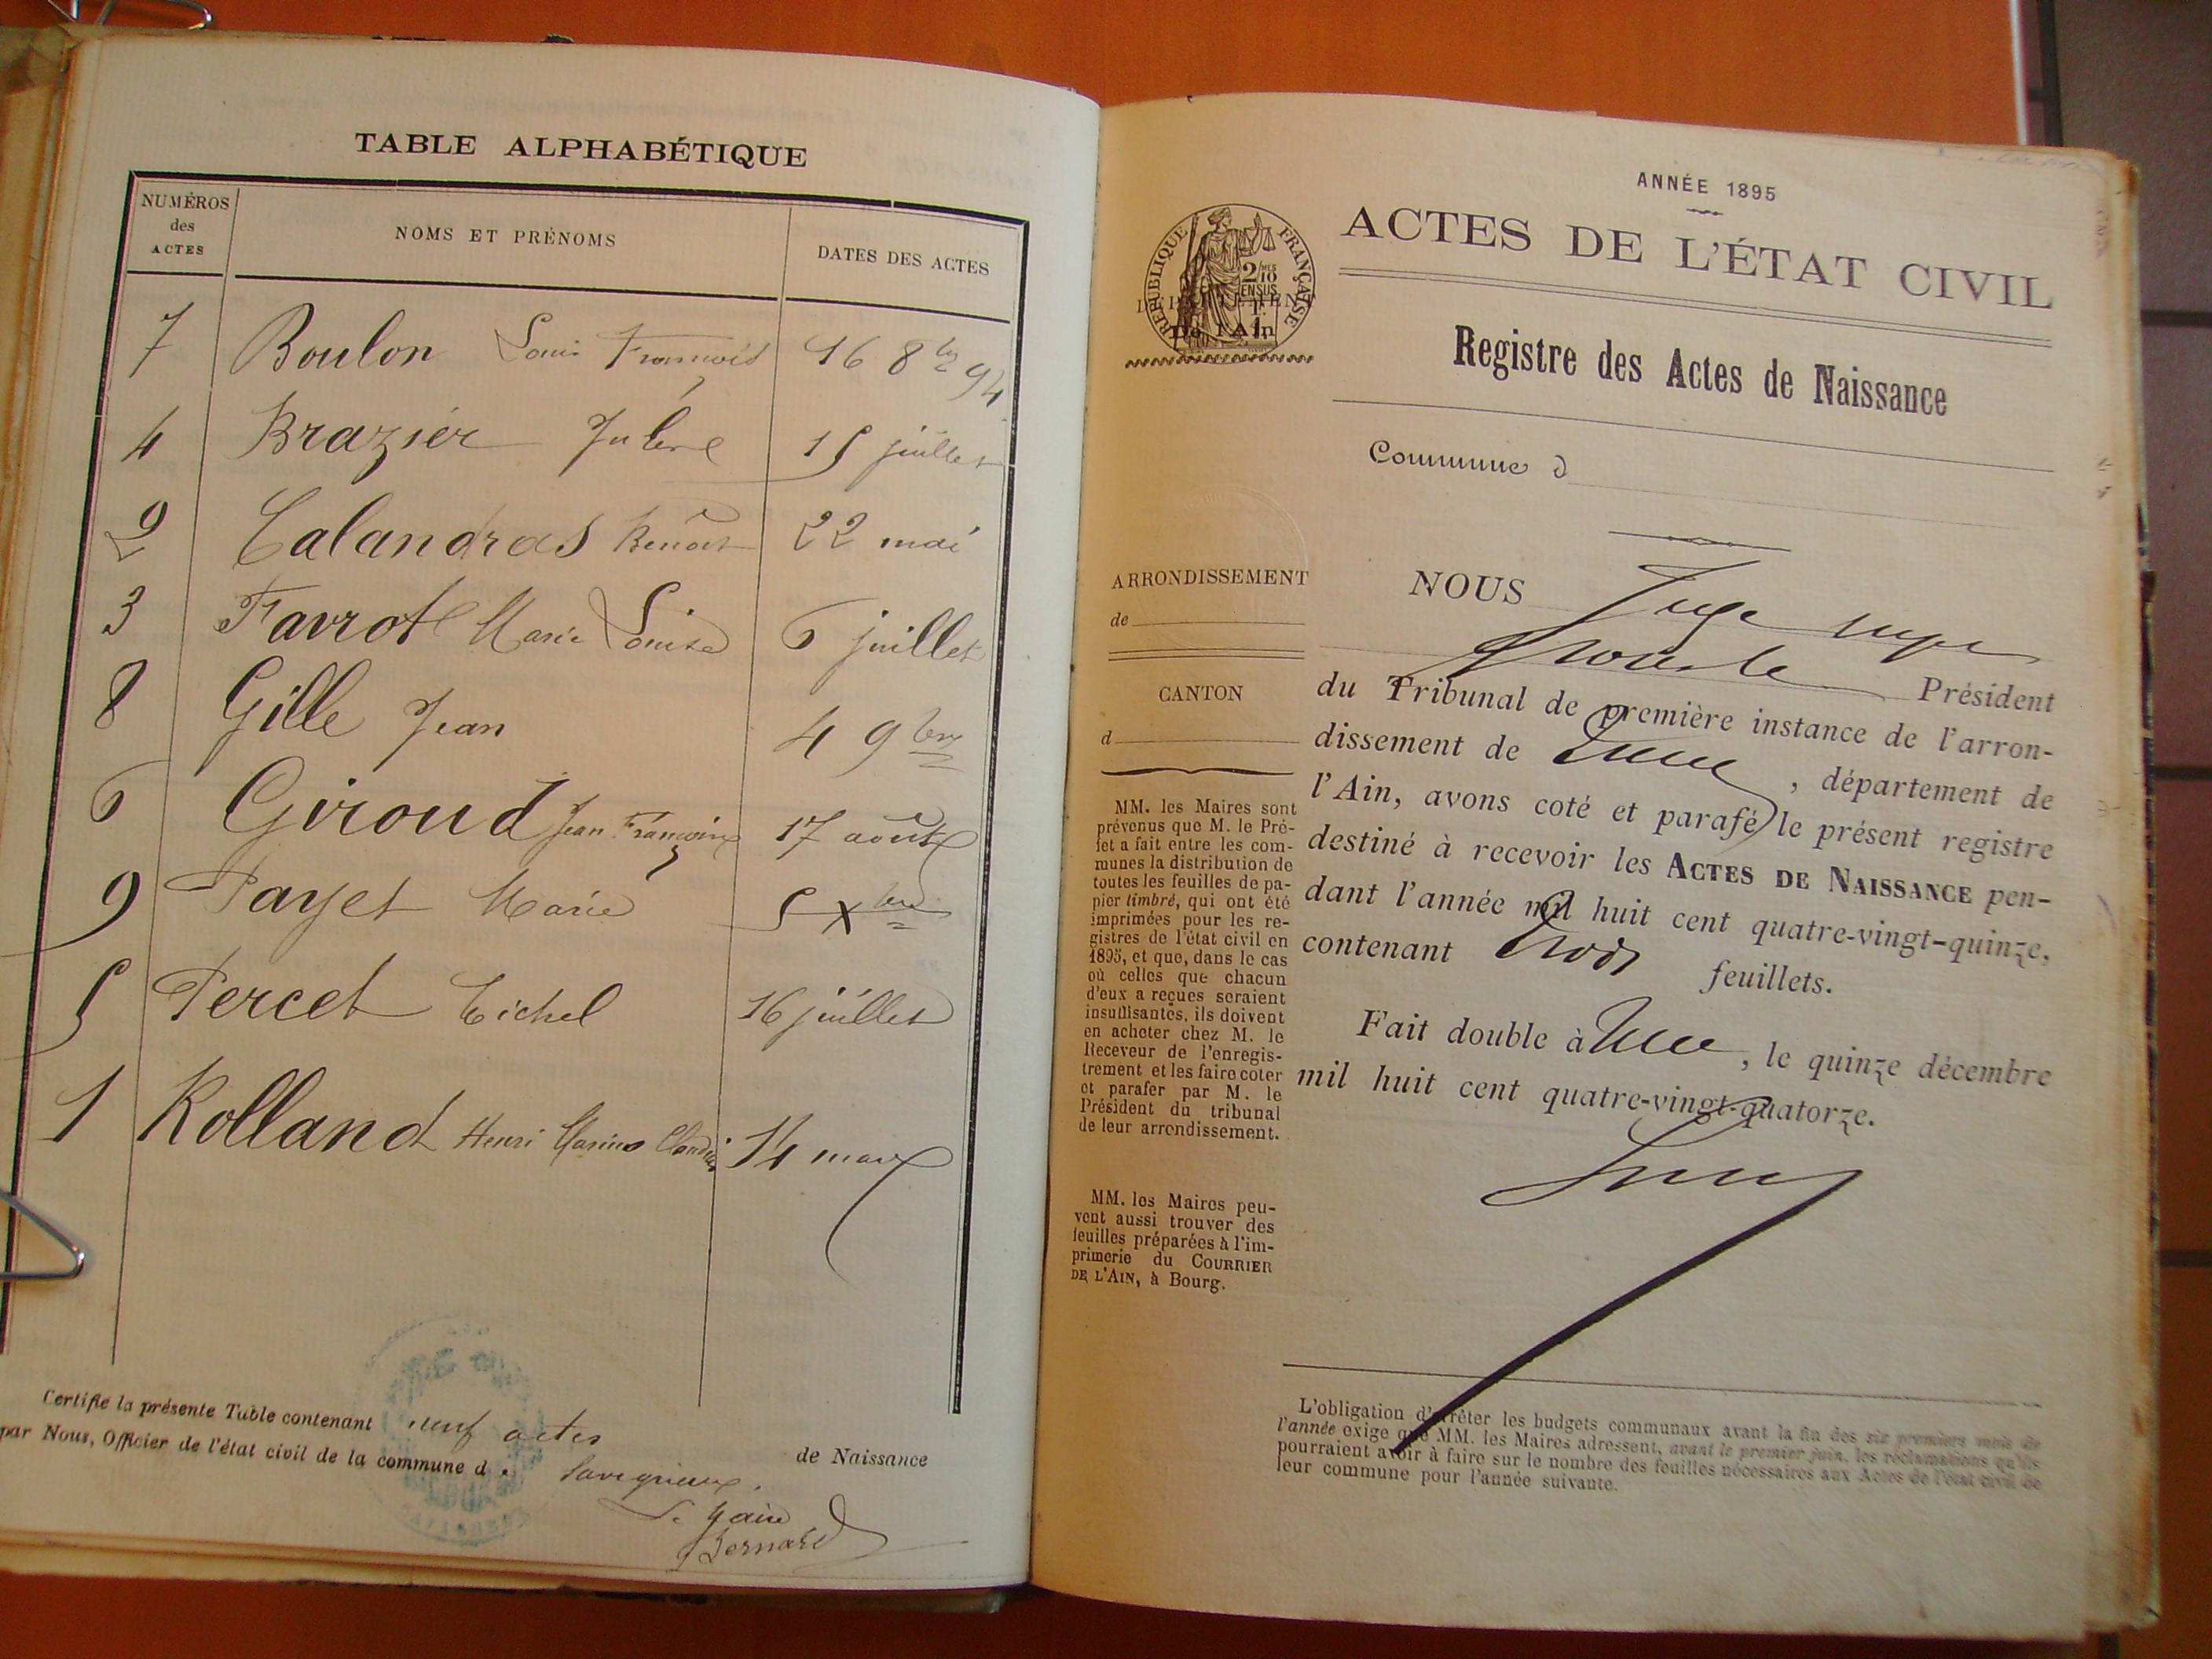 TABLE ALPHABÉTIQUE
NUMÉROS des ACTES
NOMS ET PRÉNOMS
DATES DES ACTES
7 Boulon Louis François 16 8bre 94
4 Brazier 15 juillet
2 Calandras Benoit 22 mai
3 Favrot Marie Louise 6 juillet
8 Gille Jean 4 9bre
6 Giroud Jean François 17 août
9 Payet Marie 5 Xbre
5 Percet Michel 16 juillet
1 Rolland Henri Marius Claudius 14 mars
Certifie la présente Table contenant neuf actes de Naissance
par Nous, Officier de l'état civil de la commune de Savigneux.
Le Maire
Bernard
ANNÉE 1895
ACTES DE L'ÉTAT CIVIL
RÉPUBLIQUE FRANÇAISE
2/10 MES
EN SUS
DÉPARTEMENT
De l'Ain
Registre des Actes de Naissance
Commune d
ARRONDISSEMENT
de
CANTON
d
MM. les Maires sont
prévenus que M. le Pré-
fet a fait entre les com-
munes la distribution de
toutes les feuilles de pa-
pier timbré, qui ont été
imprimées pour les re-
gistres de l'état civil en
1895, et que, dans le cas
où celles que chacun
d'eux a reçues seraient
insuffisantes, ils doivent
en acheter chez M. le
Receveur de l'enregis-
trement et les faire coter
et parafer par M. le
Président du tribunal
de leur arrondissement.
MM. les Maires peu-
vent aussi trouver des
feuilles préparées à l'im-
primerie du COURRIER
DE L'AIN, à Bourg.
NOUS Juge
Président
du Tribunal de première instance de l'arron-
dissement de , département de
l'Ain, avons coté et parafé le présent registre
destiné à recevoir les ACTES DE NAISSANCE pen-
dant l'année mil huit cent quatre-vingt-quinze,
contenant trois feuillets.
Fait double à , le quinze décembre
mil huit cent quatre-vingt-quatorze.
L'obligation d'arrêter les budgets communaux avant la fin des six premiers mois de
l'année exige que MM. les Maires adressent, avant le premier juin, les réclamations qu'ils
pourraient avoir à faire sur le nombre des feuilles nécessaires aux Actes de l'état civil de
leur commune pour l'année suivante.